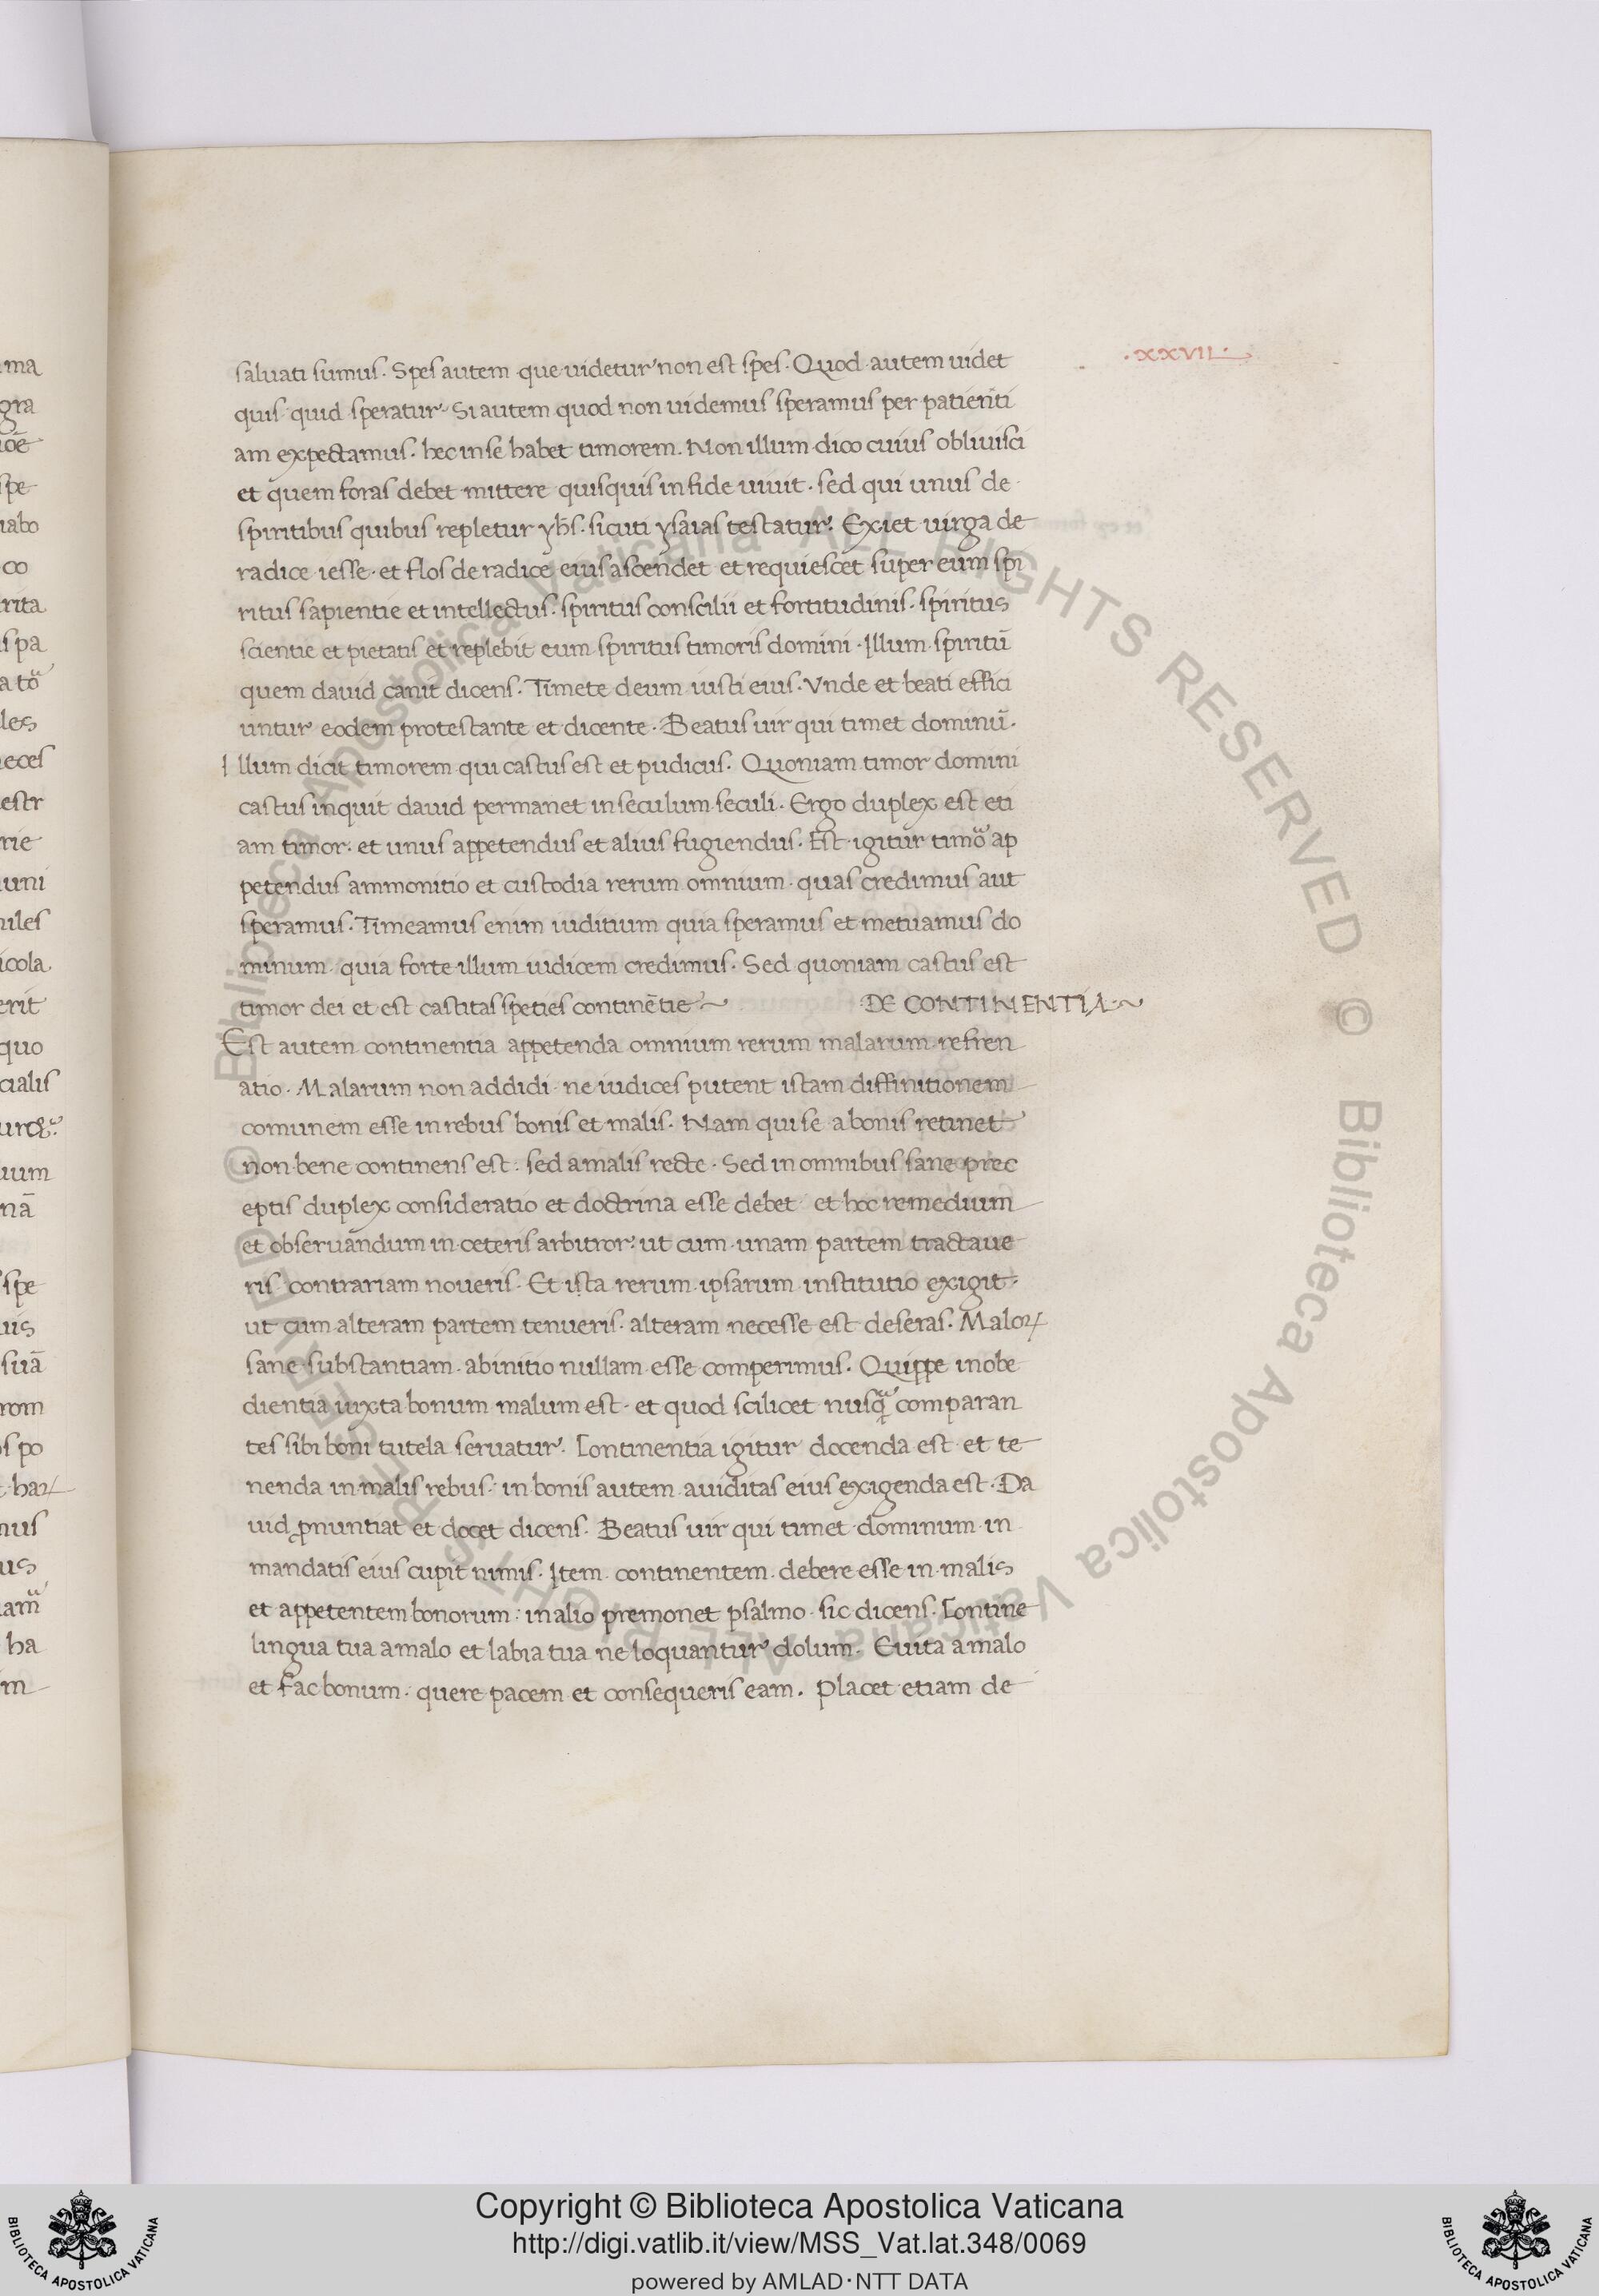 .XXVII.
saluati sumus. Spes autem que uidetur non est spes. Quod autem uidet
quis quid speratur. Si autem quod non uidemus speramus per patienti
am expectamus. hec in se habet timorem. Non illum dico cuius obliuisci
et quem foras debet mittere quisquis in fide uiuit. sed qui unus de
spiritibus quibus repletur yh̄s. sicuti ysaias testatur. Exiet uirga de
radice iesse. et flos de radice eius ascendet et requiescet super eum spi
ritus sapientie et intellectus. spiritus conscilii et fortitudinis. spiritus
scientie et pietatis et replebit eum spiritus timoris domini. Illum spiritū
quem dauid canit dicens. Timete deum iusti eius. Vnde et beati effici
untur eodem protestante et dicente. Beatus uir qui timet dominū.
Illum dicit timorem qui castus est et pudicus. Quoniam timor domini
castus inquit dauid permanet in seculum seculi. Ergo duplex est eti
am timor. et unus appetendus et alius fugiendus. Est igitur timor ap
petendus ammonitio et custodia rerum omnium quas credimus aut
speramus. Timeamus enim iuditium quia speramus et metuamus do
minum quia forte illum iudicem credimus. Sed quoniam castus est
timor dei et est castitas speties continētie DE CONTINENTIA
Est autem continentia appetenda omnium rerum malarum refren
atio. Malarum non addidi ne iudices putent istam diffinitionem
comunem esse in rebus bonis et malis. Nam qui se a bonis retinet
non bene continens est. sed a malis recte. Sed in omnibus sane prec
eptis duplex consideratio et doctrina esse debet et hoc remedium
et obseruandum in ceteris arbitror. ut cum unam partem tractaue
ris contrariam noueris. Et ista rerum ipsarum institutio exigit.
ut cum alteram partem tenueris. alteram necesse est deseras. Maloꝝ
sane substantiam ab initio nullam esse comperimus. Quippe inobe
dientia iuxta bonum malum est. et quod scilicet nusꝗ comparan
tes sibi boni tutela seruatur. Continentia igitur docenda est et te
nenda in malis rebus. in bonis autem auiditas eius exigenda est. Da
uid ꝓnuntiat et docet dicens. Beatus uir qui timet dominum in
mandatis eius cupit nimis. Item continentem debere esse in malis
et appetentem bonorum. in alio premonet psalmo sic dicens. Contine
lingua tua a malo et labia tua ne loquantur dolum. Euita a malo
et fac bonum. quere pacem et consequeris eam. Placet etiam de
© Biblioteca Apostolica Vaticana ALL RIGHTS RESERVED © Biblioteca Apostolica Vaticana ALL RIGHTS RESERVED
Copyright © Biblioteca Apostolica Vaticana
http://digi.vatlib.it/view/MSS_Vat.lat.348/0069
powered by AMLAD·NTT DATA
BIBLIOTECA APOSTOLICA VATICANA
BIBLIOTECA APOSTOLICA VATICANA